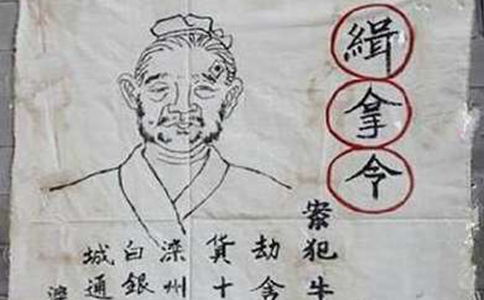 緝拿令
案犯牛
劫舍
貨十
滦州
白銀
城通